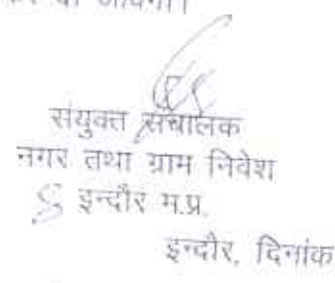 संयुक्त संचालक
नगर तथा ग्राम निवेश
इन्दौर म.प्र.
इन्दौर, दिनांक